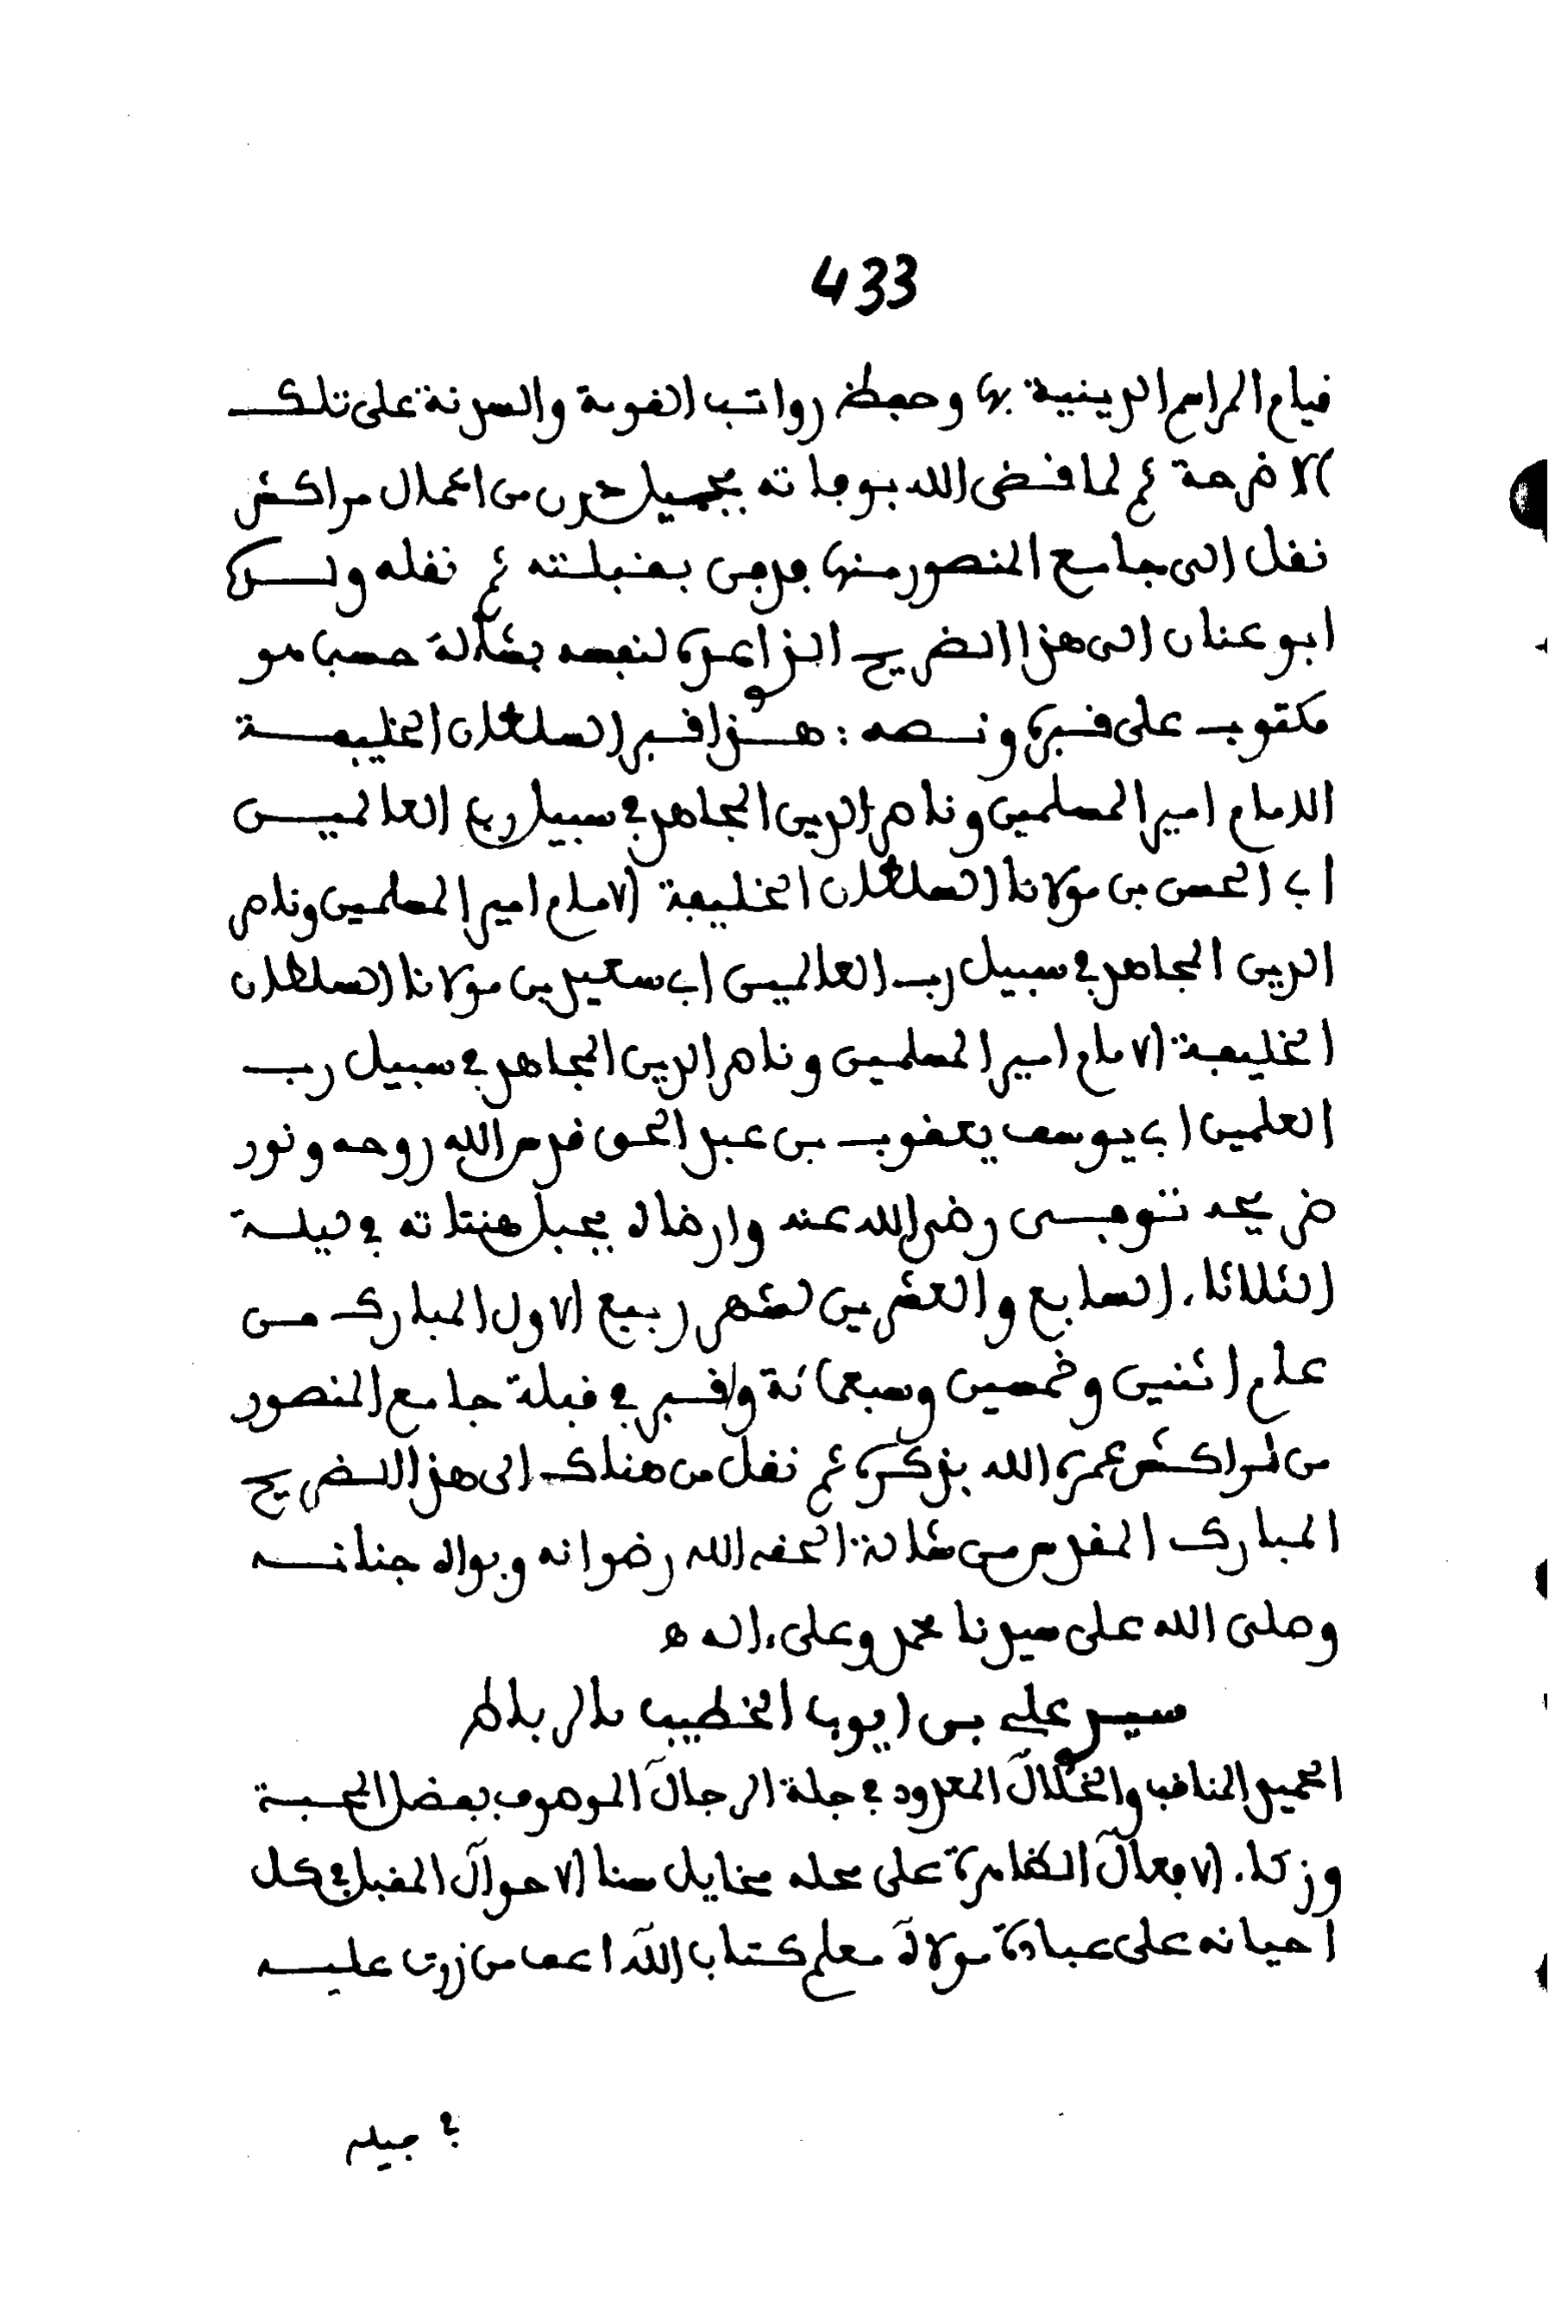 433
قيام المراسم الدينية بها وحفظ رواتب القومة والسدنة على تلك
الاضرحة ثم لما قضى الله بوفاته بجبل درن من اعمال مراكش
نقل الى جامع المنصور منها فدفن بقبلته ثم نقله ولده
ابو عنان الى هذا الضريح الذي اعده لنفسه بشالة حسبما هو
مكتوب على قبره ونصه : هذا قبر السلطان الخليفة
الامام امير المسلمين وناصر الدين المجاهد في سبيل رب العالمين
ابي الحسن بن مولانا السلطان الخليفة الامام امير المسلمين وناصر
الدين المجاهد في سبيل رب العالمين ابي سعيد بن مولانا السلطان
الخليفة الامام امير المسلمين وناصر الدين المجاهد في سبيل رب
العلمين ابي يوسف يعقوب بن عبد الحق قدس الله روحه ونور
ضريحه توفي رضي الله عنه وارضاه بجبل هنتاته في ليلة
الثلاثاء السابع والعشرين لشهر ربيع الاول المبارك من
عام اثنين وخمسين وسبعمائة واقبر في قبلة جامع المنصور
من مراكش عمره الله بذكره ثم نقل من هناك الى هذا الضريح
المبارك المقدس من شالة الحفه الله رضوانه وبوأه جنانه
وصلى الله على سيدنا محمد وعلى ءاله ه
سيدي علي بن ايوب الخطيب بالرباط
الحميد المناقب والخلال المعدود في جلة الرجال الموصوف بفضل المحبة
وزكاء الافعال الظاهرة على محله مخايل سنا الاحوال المقبل في كل
احيانه على عبادة مولاه معلم كتاب الله اعف من زرت عليه
في جيله